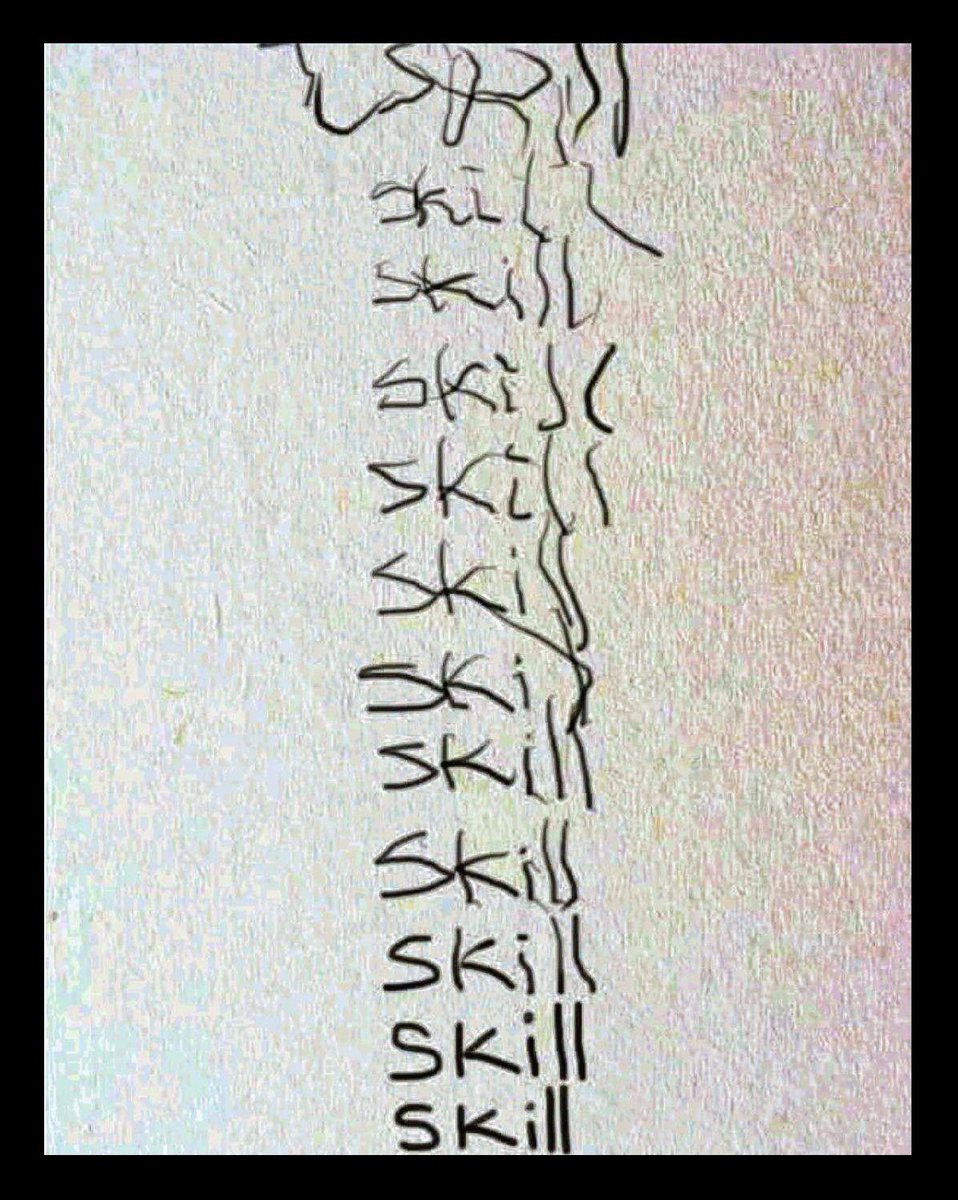 skill
skill
skill
skill
skill
skill
skill
skill
skill
skill